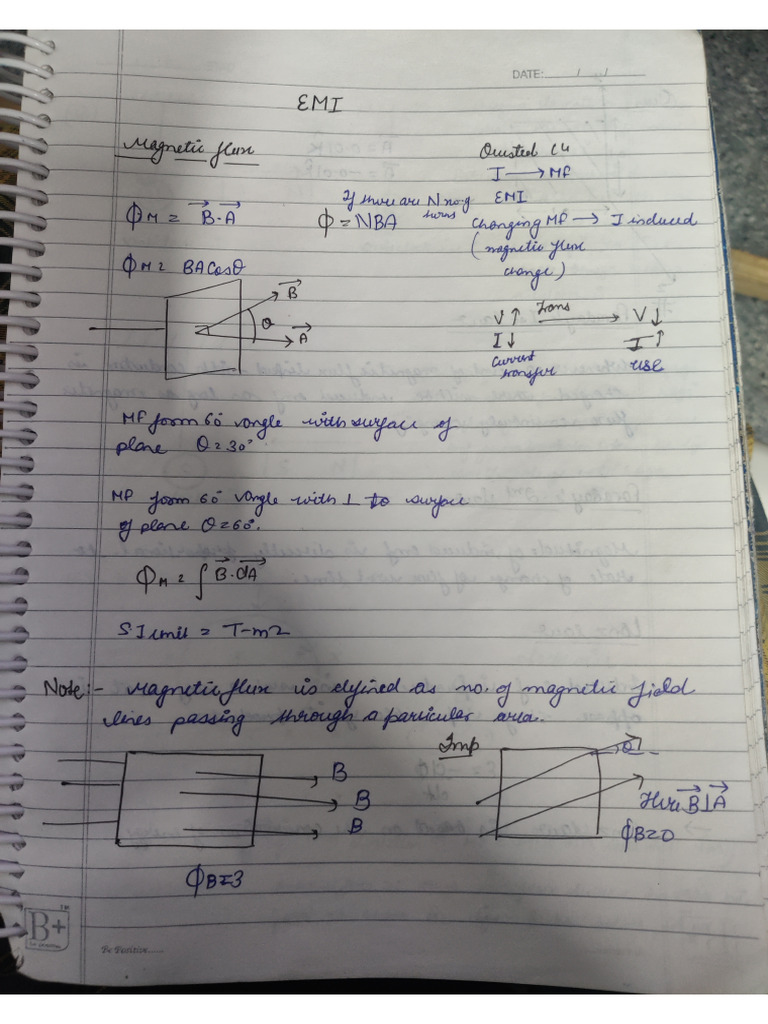 DATE:
EMI
Magnetic flux
Oursted Ch
I → MF
If there are N no. of turns
EMI
ϕM = B⃗·A⃗
ϕ = NBA
Changing MF → I induced
(magnetic flux change)
ϕM = BA Cosθ
B⃗
θ
A⃗
V↑ Trans → V↓
I↓ I↑
Current transfer
use
MF form 60° angle with surface of
plane θ=30°
MF form 60° angle with ⊥ to surface
of plane θ=60°.
ϕM = ∫B⃗·dA⃗
S.I unit = T-m2
Note:- Magnetic flux is defined as no. of magnetic field
lines passing through a particular area.
B
B
B
ϕB=3
Imp
θ
Here B⃗⊥A⃗
ϕB=0
B+
Be Positive